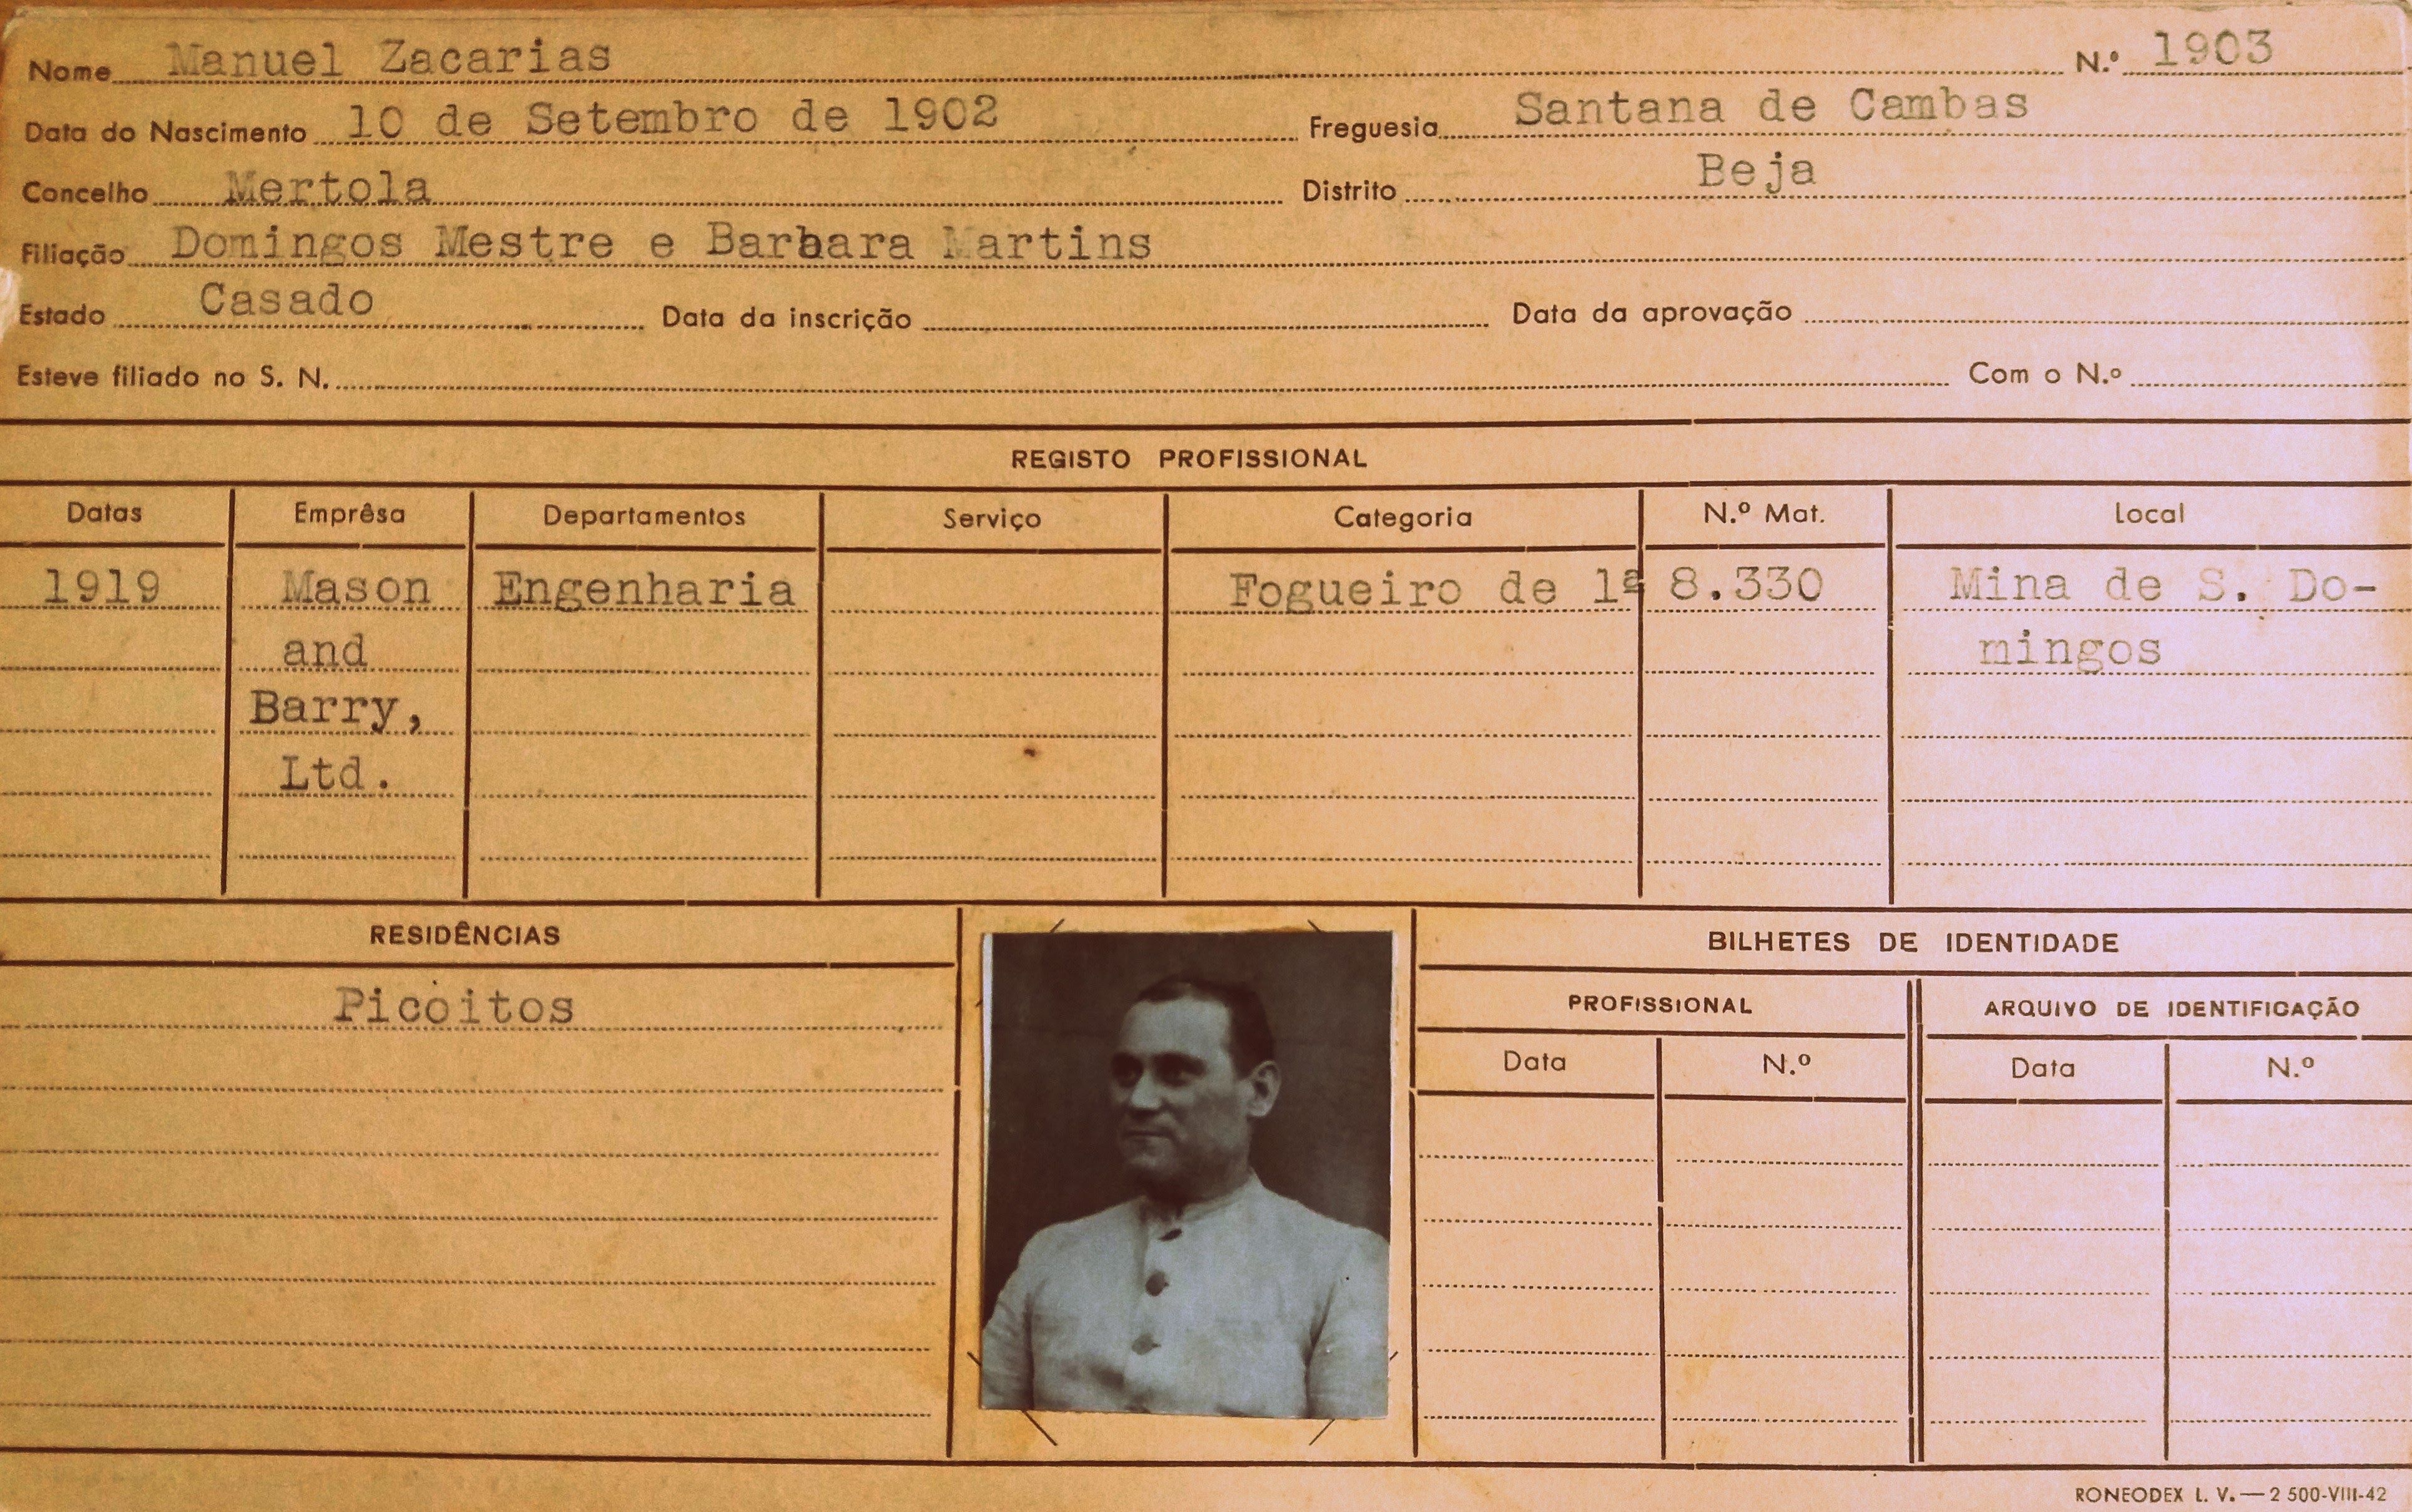 Nome Manuel Zacarias N.º 1903
Data do Nascimento 10 de Setembro de 1902 Freguesia Santana de Cambas
Concelho Mertola Distrito Beja
Filiação Domingos Mestre e Barbara Martins
Estado Casado Data da inscrição Data da aprovação
Esteve filiado no S. N. Com o N.º
REGISTO PROFISSIONAL
Datas Emprêsa Departamentos Serviço Categoria N.º Mat. Local
1919 Mason Engenharia Fogueiro de 1ª 8.330 Mina de S. Do-
and mingos
Barry,
Ltd.
RESIDÊNCIAS BILHETES DE IDENTIDADE
Picoitos PROFISSIONAL ARQUIVO DE IDENTIFICAÇÃO
Data N.º Data N.º
RONEODEX L. V. — 2 500-VIII-42